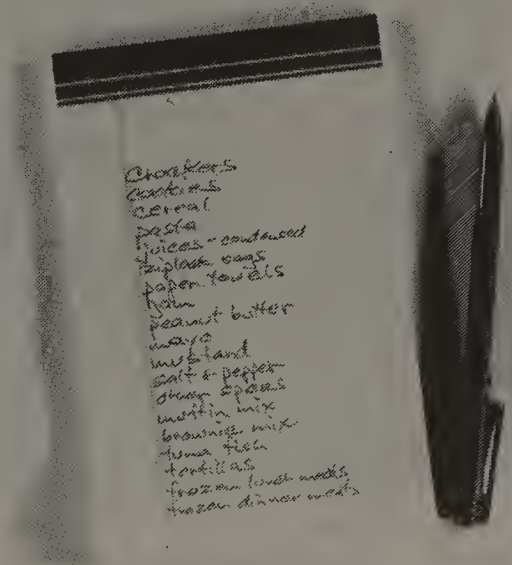 Crackers
cookies
cereal
pasta
juices - condensed
ziplock bags
paper towels
jam
peanut butter
mayo
mustard
salt & pepper
cream
muffin mix
brownie mix
tuna fish
tortillas
frozen lunch meats
frozen dinner meats